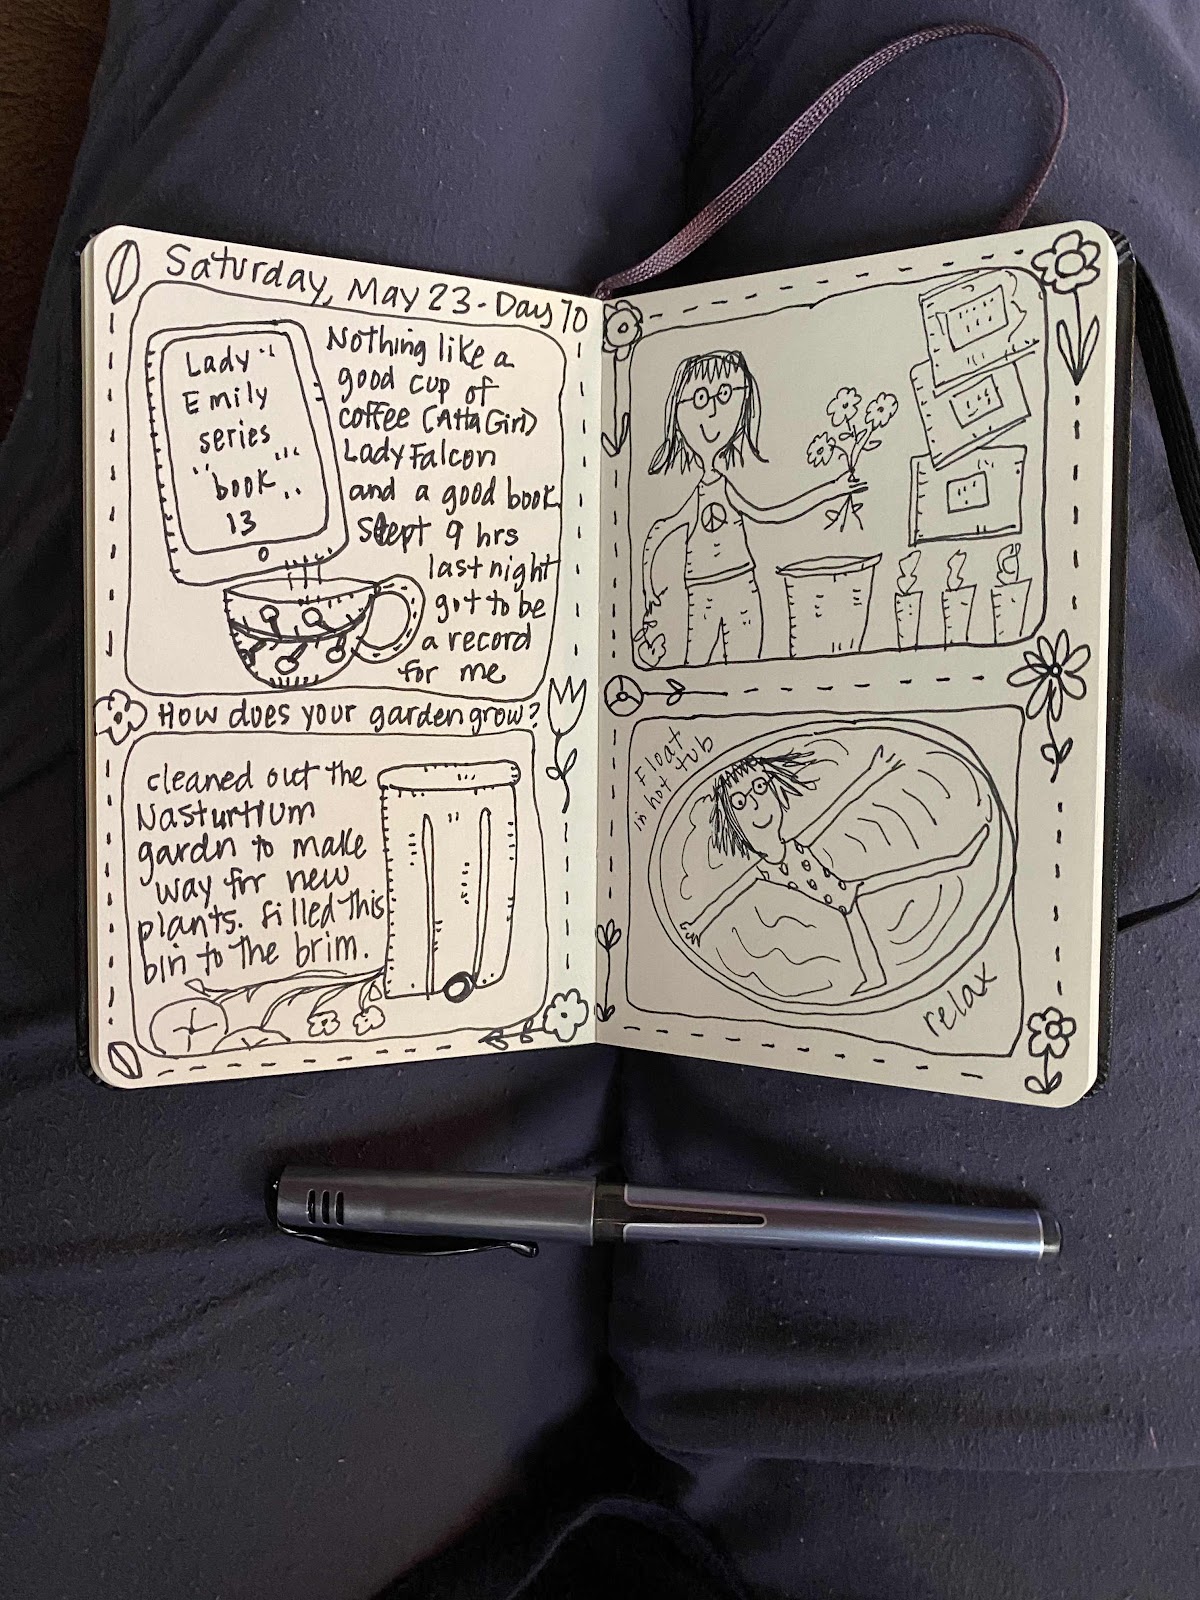 Saturday, May 23 - Day 70
Lady
Emily
series
"book"
13
Nothing like a
good cup of
coffee (Atta Girl)
Lady Falcon
and a good book.
Slept 9 hrs
last night
got to be
a record
for me
How does your garden grow?
cleaned out the
Nasturtium
gardn to make
way for new
plants. filled this
bin to the brim.
Float
in hot tub
relax